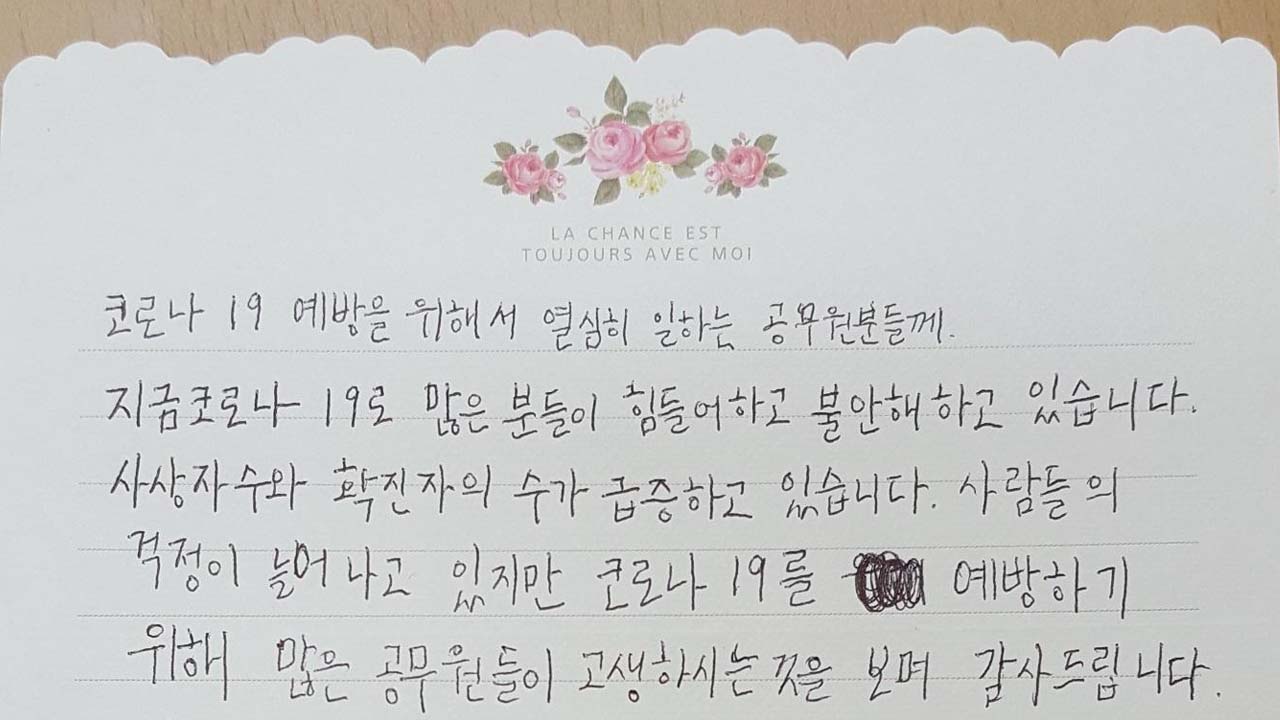 LA CHANCE EST
TOUJOURS AVEC MOI
코로나 19 예방을 위해서 열심히 일하는 공무원분들께.
지금코로나 19로 많은 분들이 힘들어하고 불안해하고 있습니다.
사상자수와 확진자의 수가 급증하고 있습니다. 사람들의
걱정이 늘어나고 있지만 코로나 19를 예방하기
위해 많은 공무원들이 고생하시는것을 보며 감사드립니다.